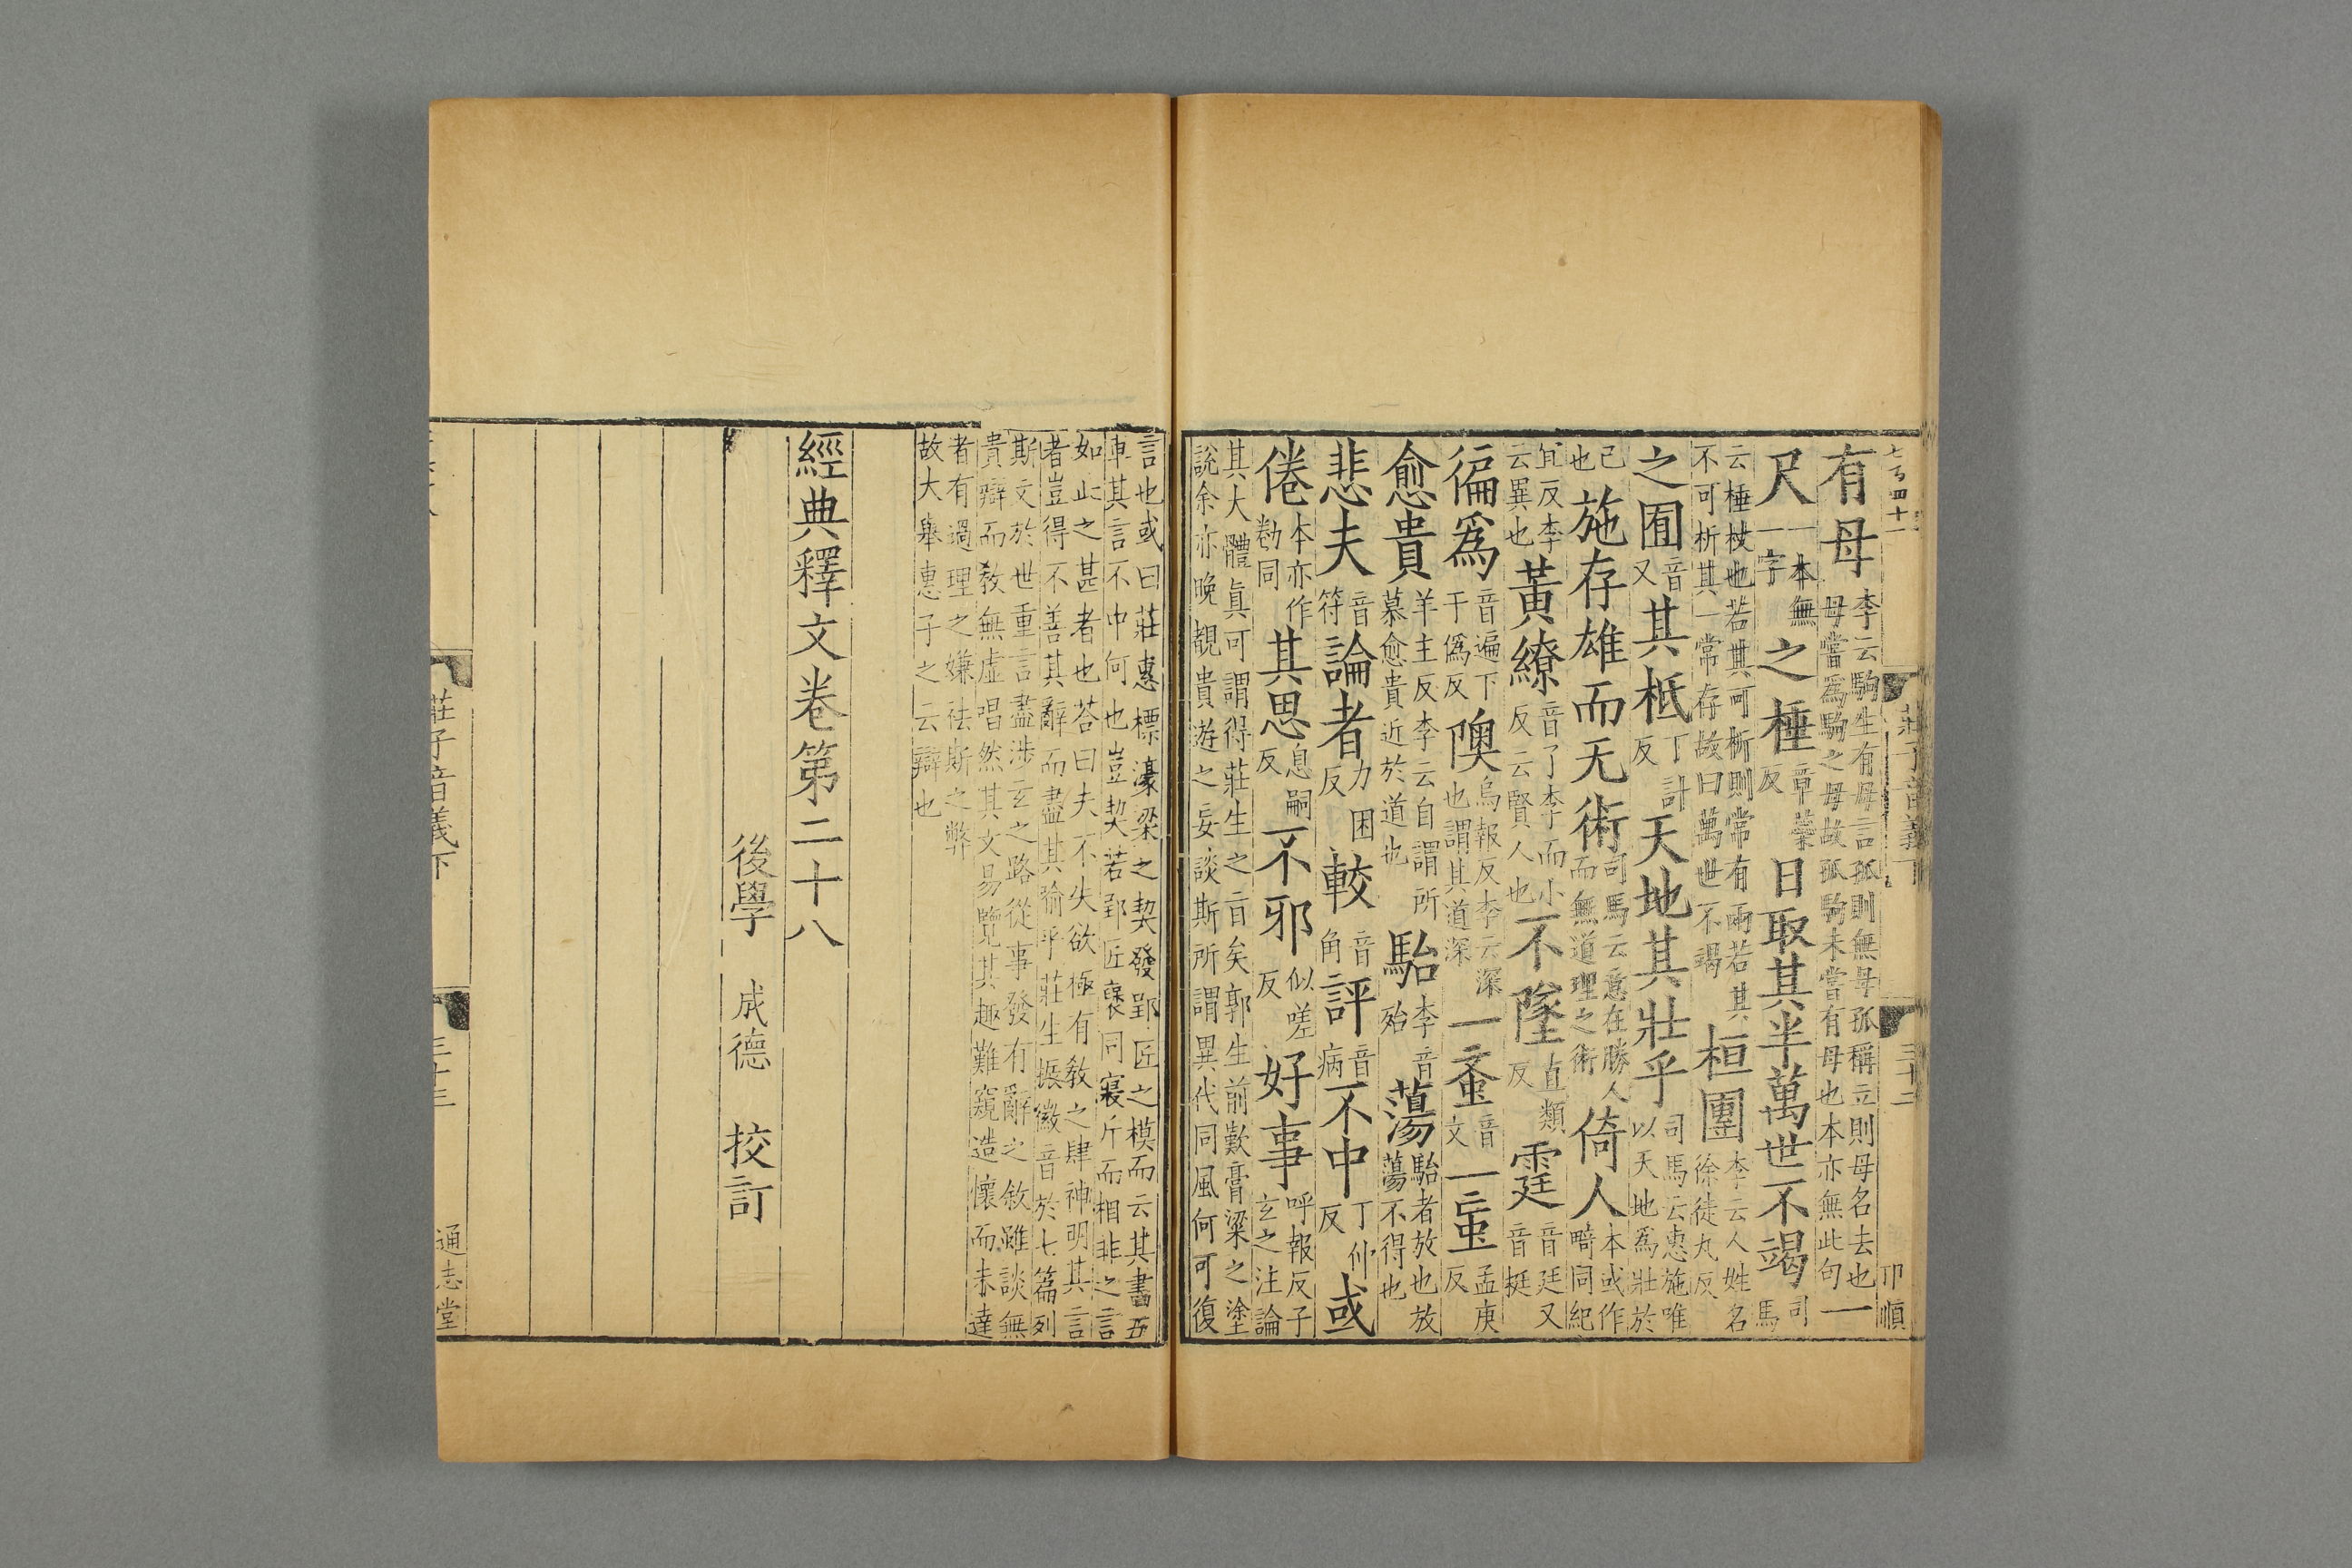 有母李云駒生有母言孤則無母孤稱立則母名去也母嘗爲駒之母故孤駒未嘗有母也本亦無此句一
尺一本無一字之棰章橤反日取其半萬世不竭司馬
云棰杖也若其可析則常有兩若其不可析其一常存故曰萬世不竭桓團李云人姓名徐徒丸反
之囿音又其柢丁計反天地其壯乎司馬云惠施唯以天地爲壯於
己也施存雄而无術司馬云意在勝人而無道理之術倚人本或作畸同紀
宜反李云異也黃繚音了李而小反云賢人也不墜直類反霆音廷又音挺
徧爲音遍下于僞反隩烏報反李云深也謂其道深一蚉音文一䖟孟庚反
愈貴羊主反李云自謂所慕愈貴近於道也駘李音殆蕩駘者放也放蕩不得也
悲夫音符論者力困反較音角評音病不中丁仲反或
倦本亦作勌同其思息嗣反不邪似嗟反好事呼報反子玄之注論
其大體眞可謂得莊生之旨矣郭生前歎膏粱之塗說余亦晚覩貴遊之妄談斯所謂異代同風何可復
莊子音義下
三十二
卬順
言也或曰莊惠標濠梁之契發郢匠之模而云其書五車其言不中何也豈契若郢匠襃同寢斤而相非之言
如此之甚者也荅曰夫不失欲極有敎之肆神明其言者豈得不善其辭而盡其喻乎莊生振徽音於七篇列
斯文於世重言盡涉玄之路從事發有辭之敘雖談無貴辯而敎無虛唱然其文易覽其趣難窺造懷而未達
者有過理之嫌祛斯之弊故大舉惠子之云辯也
經典釋文卷第二十八
後學 成德 挍訂
莊子音義下
三十三
通志堂